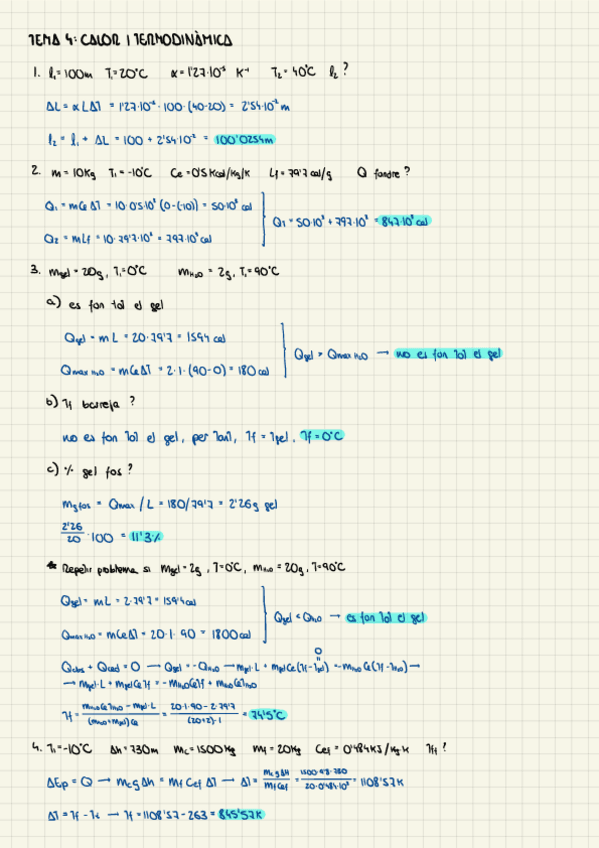 TEMA 4: CALOR I TERMODINÀMICA
1. l₁=100m T₁=20°C α=1'27·10⁻⁵ K⁻¹ T₂=40°C l₂?
ΔL = αLΔT = 1'27·10⁻⁵·100·(40-20) = 2'54·10⁻² m
l₂ = l₁ + ΔL = 100 + 2'54·10⁻² = 100'0254m
2. m=10Kg T₁=-10°C Ce=0'5 Kcal/kg/K Lf=79'7 cal/g Q fondre?
Q₁ = mCeΔT = 10·0'5·10³(0-(-10)) = 50·10³ cal
QT = 50·10³ + 797·10³ = 847·10³ cal
Q₂ = mLf = 10·79'7·10³ = 797·10³ cal
3. mgel = 20g, T₁=0°C mH₂O = 2g, T₁=90°C
a) es fon tot el gel
Qgel = mL = 20·79'7 = 1594 cal
Qgel > Qmax H₂O → no es fon tot el gel
Qmax H₂O = mCeΔT = 2·1·(90-0) = 180 cal
b) Tf barreja?
no es fon tot el gel, per tant, Tf = Tgel. Tf = 0°C
c) % gel fos?
mgfos = Qmax / L = 180/79'7 = 2'26g gel
2'26/20 · 100 = 11'3%
* Repetir problema si mgel = 2g, T=0°C, mH₂O = 20g, T=90°C
Qgel = mL = 2·79'7 = 159'4 cal
Qgel < QH₂O → es fon tot el gel
Qmax H₂O = mCeΔT = 20·1·90 = 1800 cal
0
Qabs + Qced = 0 → Qgel = -QH₂O → mgel·L + mgelCe(Tf-Tgel) = -mH₂OCe(Tf-TH₂O) →
→ mgel·L + mgelCeTf = -mH₂OCeTf + mH₂OCeTH₂O
Tf = (mH₂OCeTH₂O - mgel·L)/((mH₂O+mgel)Ce) = (20·1·90 - 2·79'7)/((20+2)·1) = 74'5°C
4. T₁=-10°C Δh=730m mc=1500Kg mf=20Kg Cef=0'484KJ/kg·K Tf?
ΔEp = Q → mcgΔh = mfCefΔT → ΔT = mcgΔH/mfCef = 1500·9'8·730/20·0'484·10³ = 1108'57K
ΔT = Tf - Ti → Tf = 1108'57 - 263 = 845'57K